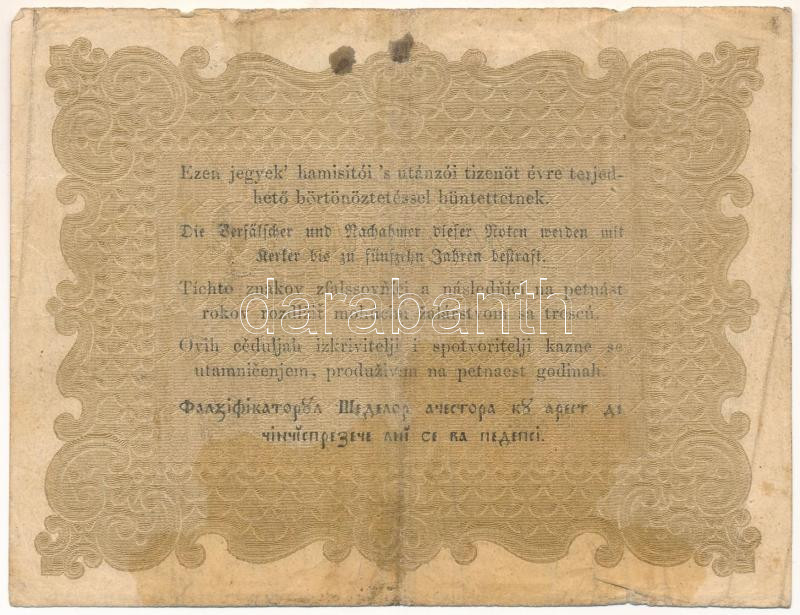 Ezen jegyek' hamisítói 's utánzói tizenöt évre terjed-
hető börtönöztetéssel büntettetnek.
Die Verfälscher und Nachahmer dieser Noten werden mit
Kerker bis zu fünfzehn Jahren bestraft.
Tíchto znakov zfalssovňící a následůjcí na petnást
rokov rozdlžiť žalárstvom sa trescú.
darabanth
Ovih cěduljah izkrivitelji i spotvoritelji kazne se
utamničenjem, produživim na petnaest godinah.
Фалꙁіфікаторꙋл Шеделор ачестора кꙋ арест де
чінчіспрезече ані се ва педепсі.